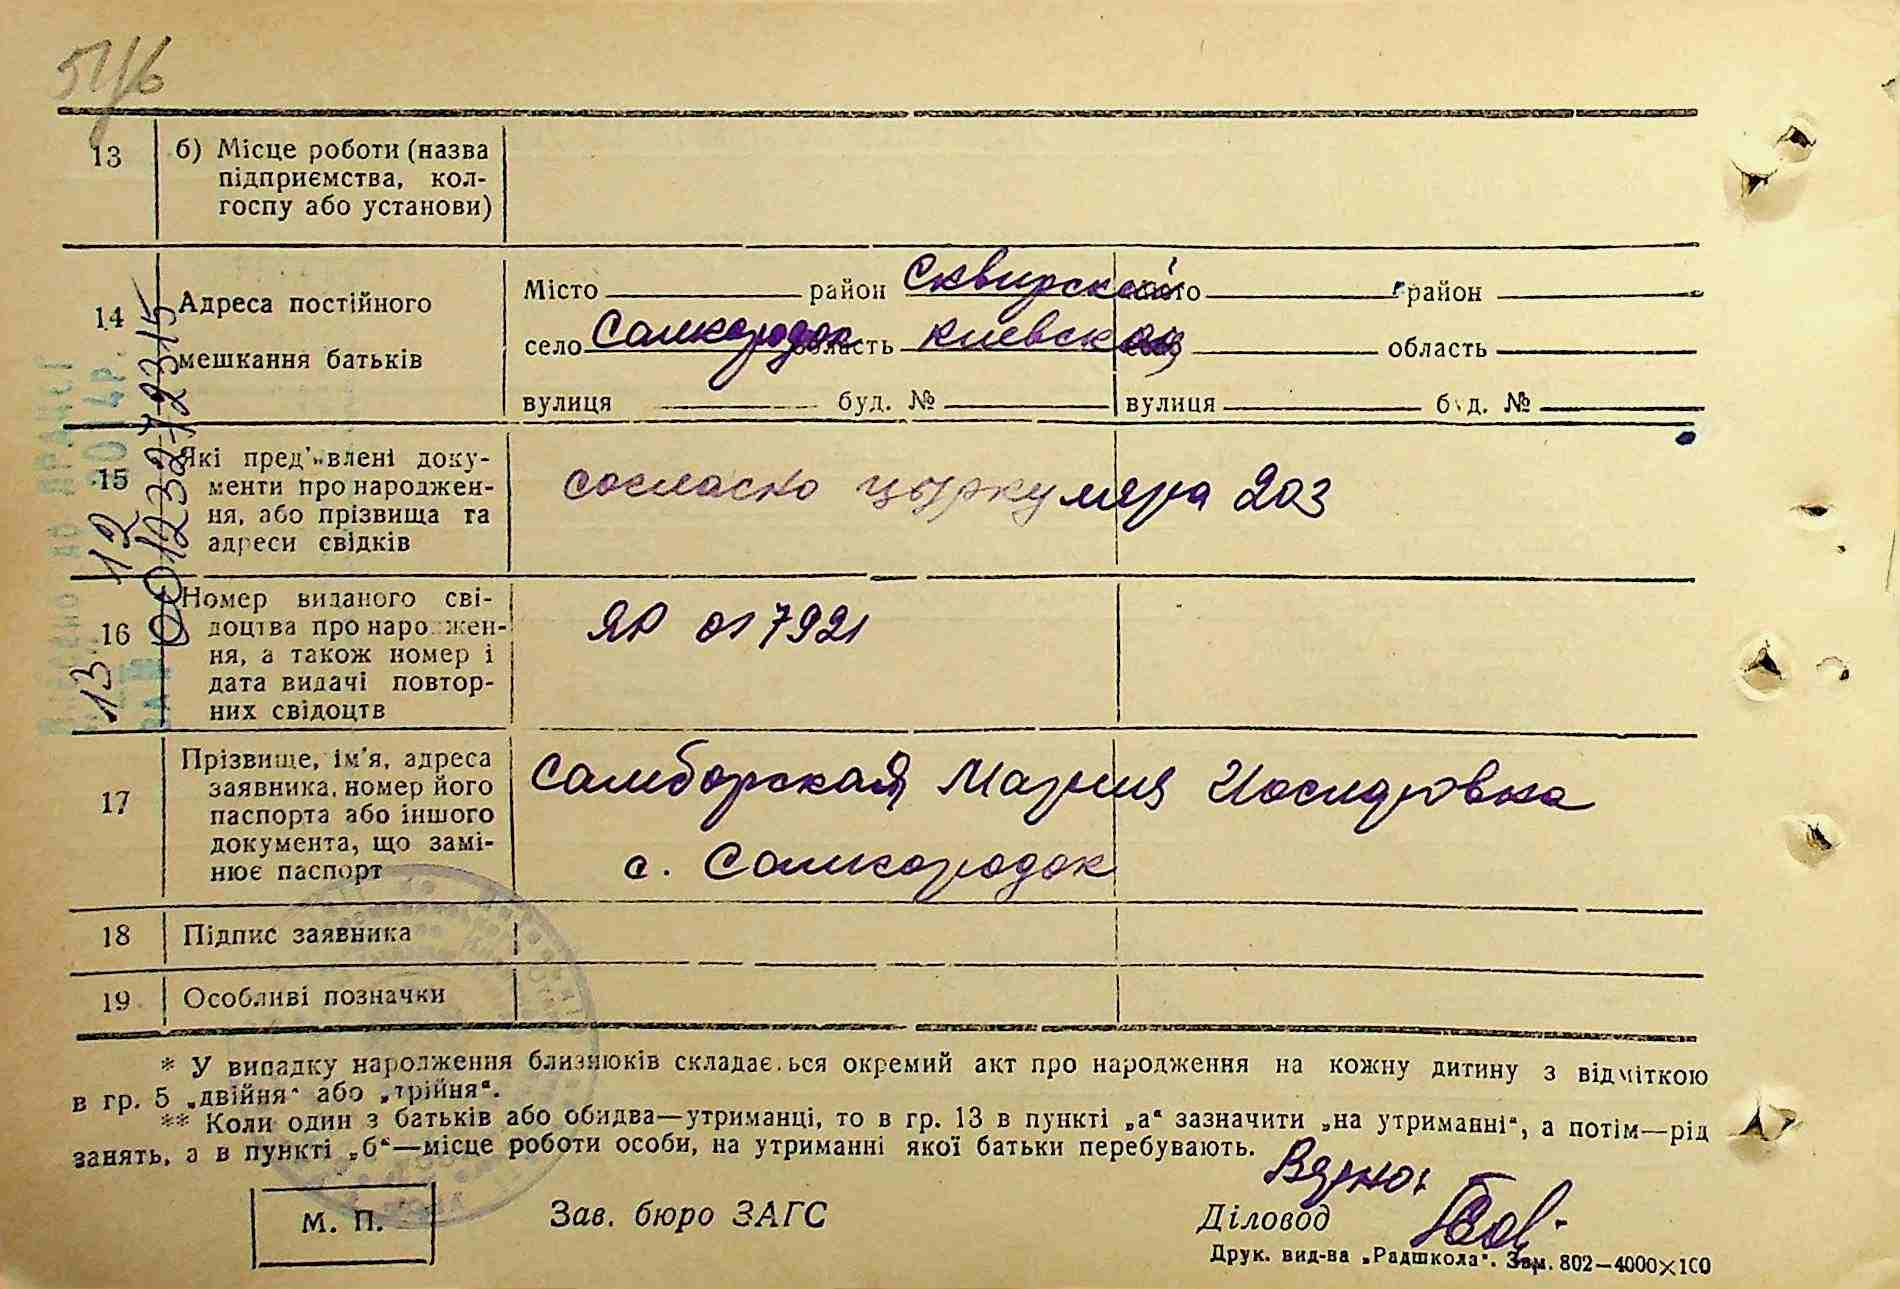 51/6
13 б) Місце роботи (назва
підприємства, кол-
госпу або установи)
14 Адреса постійного
мешкання батьків
Місто район Сквирский район
село Самгородок область Киевская область
вулиця буд. № вулиця буд. №
15 Які пред'явлені доку-
менти про народжен-
ня, або прізвища та
адреси свідків
согласно циркуляра 203
16 Номер виданого сві-
доцтва про народжен-
ня, а також номер і
дата видачі повтор-
них свідоцтв
ЯР 017921
17 Прізвище, ім'я, адреса
заявника, номер його
паспорта або іншого
документа, що замі-
нює паспорт
Самборская Мария Иосиповна
с. Самгородок
18 Підпис заявника
19 Особливі позначки
* У випадку народження близнюків складається окремий акт про народження на кожну дитину з відміткою
в гр. 5 „двійня“ або „трійня“.
** Коли один з батьків або обидва—утриманці, то в гр. 13 в пункті „а“ зазначити „на утриманні“, а потім—рід
занять, а в пункті „б“—місце роботи особи, на утриманні якої батьки перебувають.
М. П.
Зав. бюро ЗАГС
Діловод
Друк. вид-ва „Радшкола“. Зам. 802—4000×100